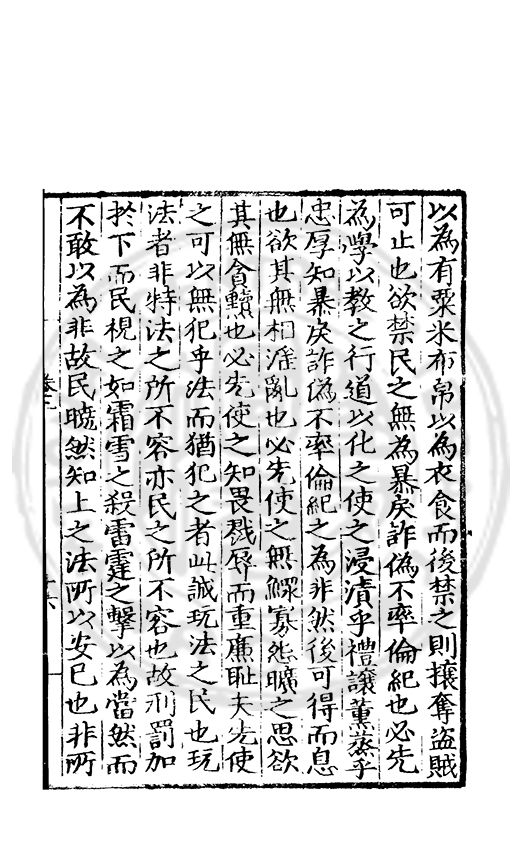 以為有粟米布帛以為衣食而後禁之則攘奪盜賊
可止也欲禁民之無為暴戾詐偽不率倫紀也必先
為學以教之行道以化之使之浸漬乎禮讓薰蒸乎
忠厚知暴戾詐偽不率倫紀之為非然後可得而息
也欲其無相淫亂也必先使之無鰥寡怨曠之思欲
其無貪黷也必先使之知畏戮辱而重廉恥夫先使
之可以無犯乎法而猶犯之者此誠玩法之民也玩
法者非特法之所不容亦民之所不容也故刑罰加
於下而民視之如霜雪之殺雷霆之擊以為當然而
不敢以為非故民曉然知上之法所以安已也非所